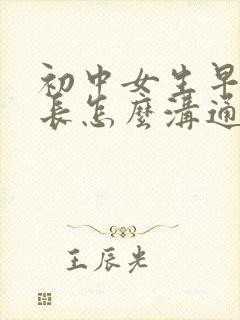 初中女生早
長怎麼溝通
王辰光